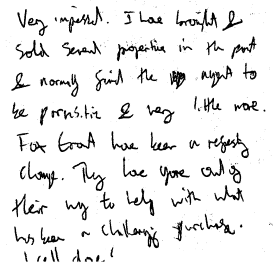 Very impressed. I have bought &
sold several properties in the past
& normally find the agent to
be parasitic & very little more.
Fox Grant have been a refreshing
change. They have gone out of
their way to help with what
has been a challenging purchase.
well done!